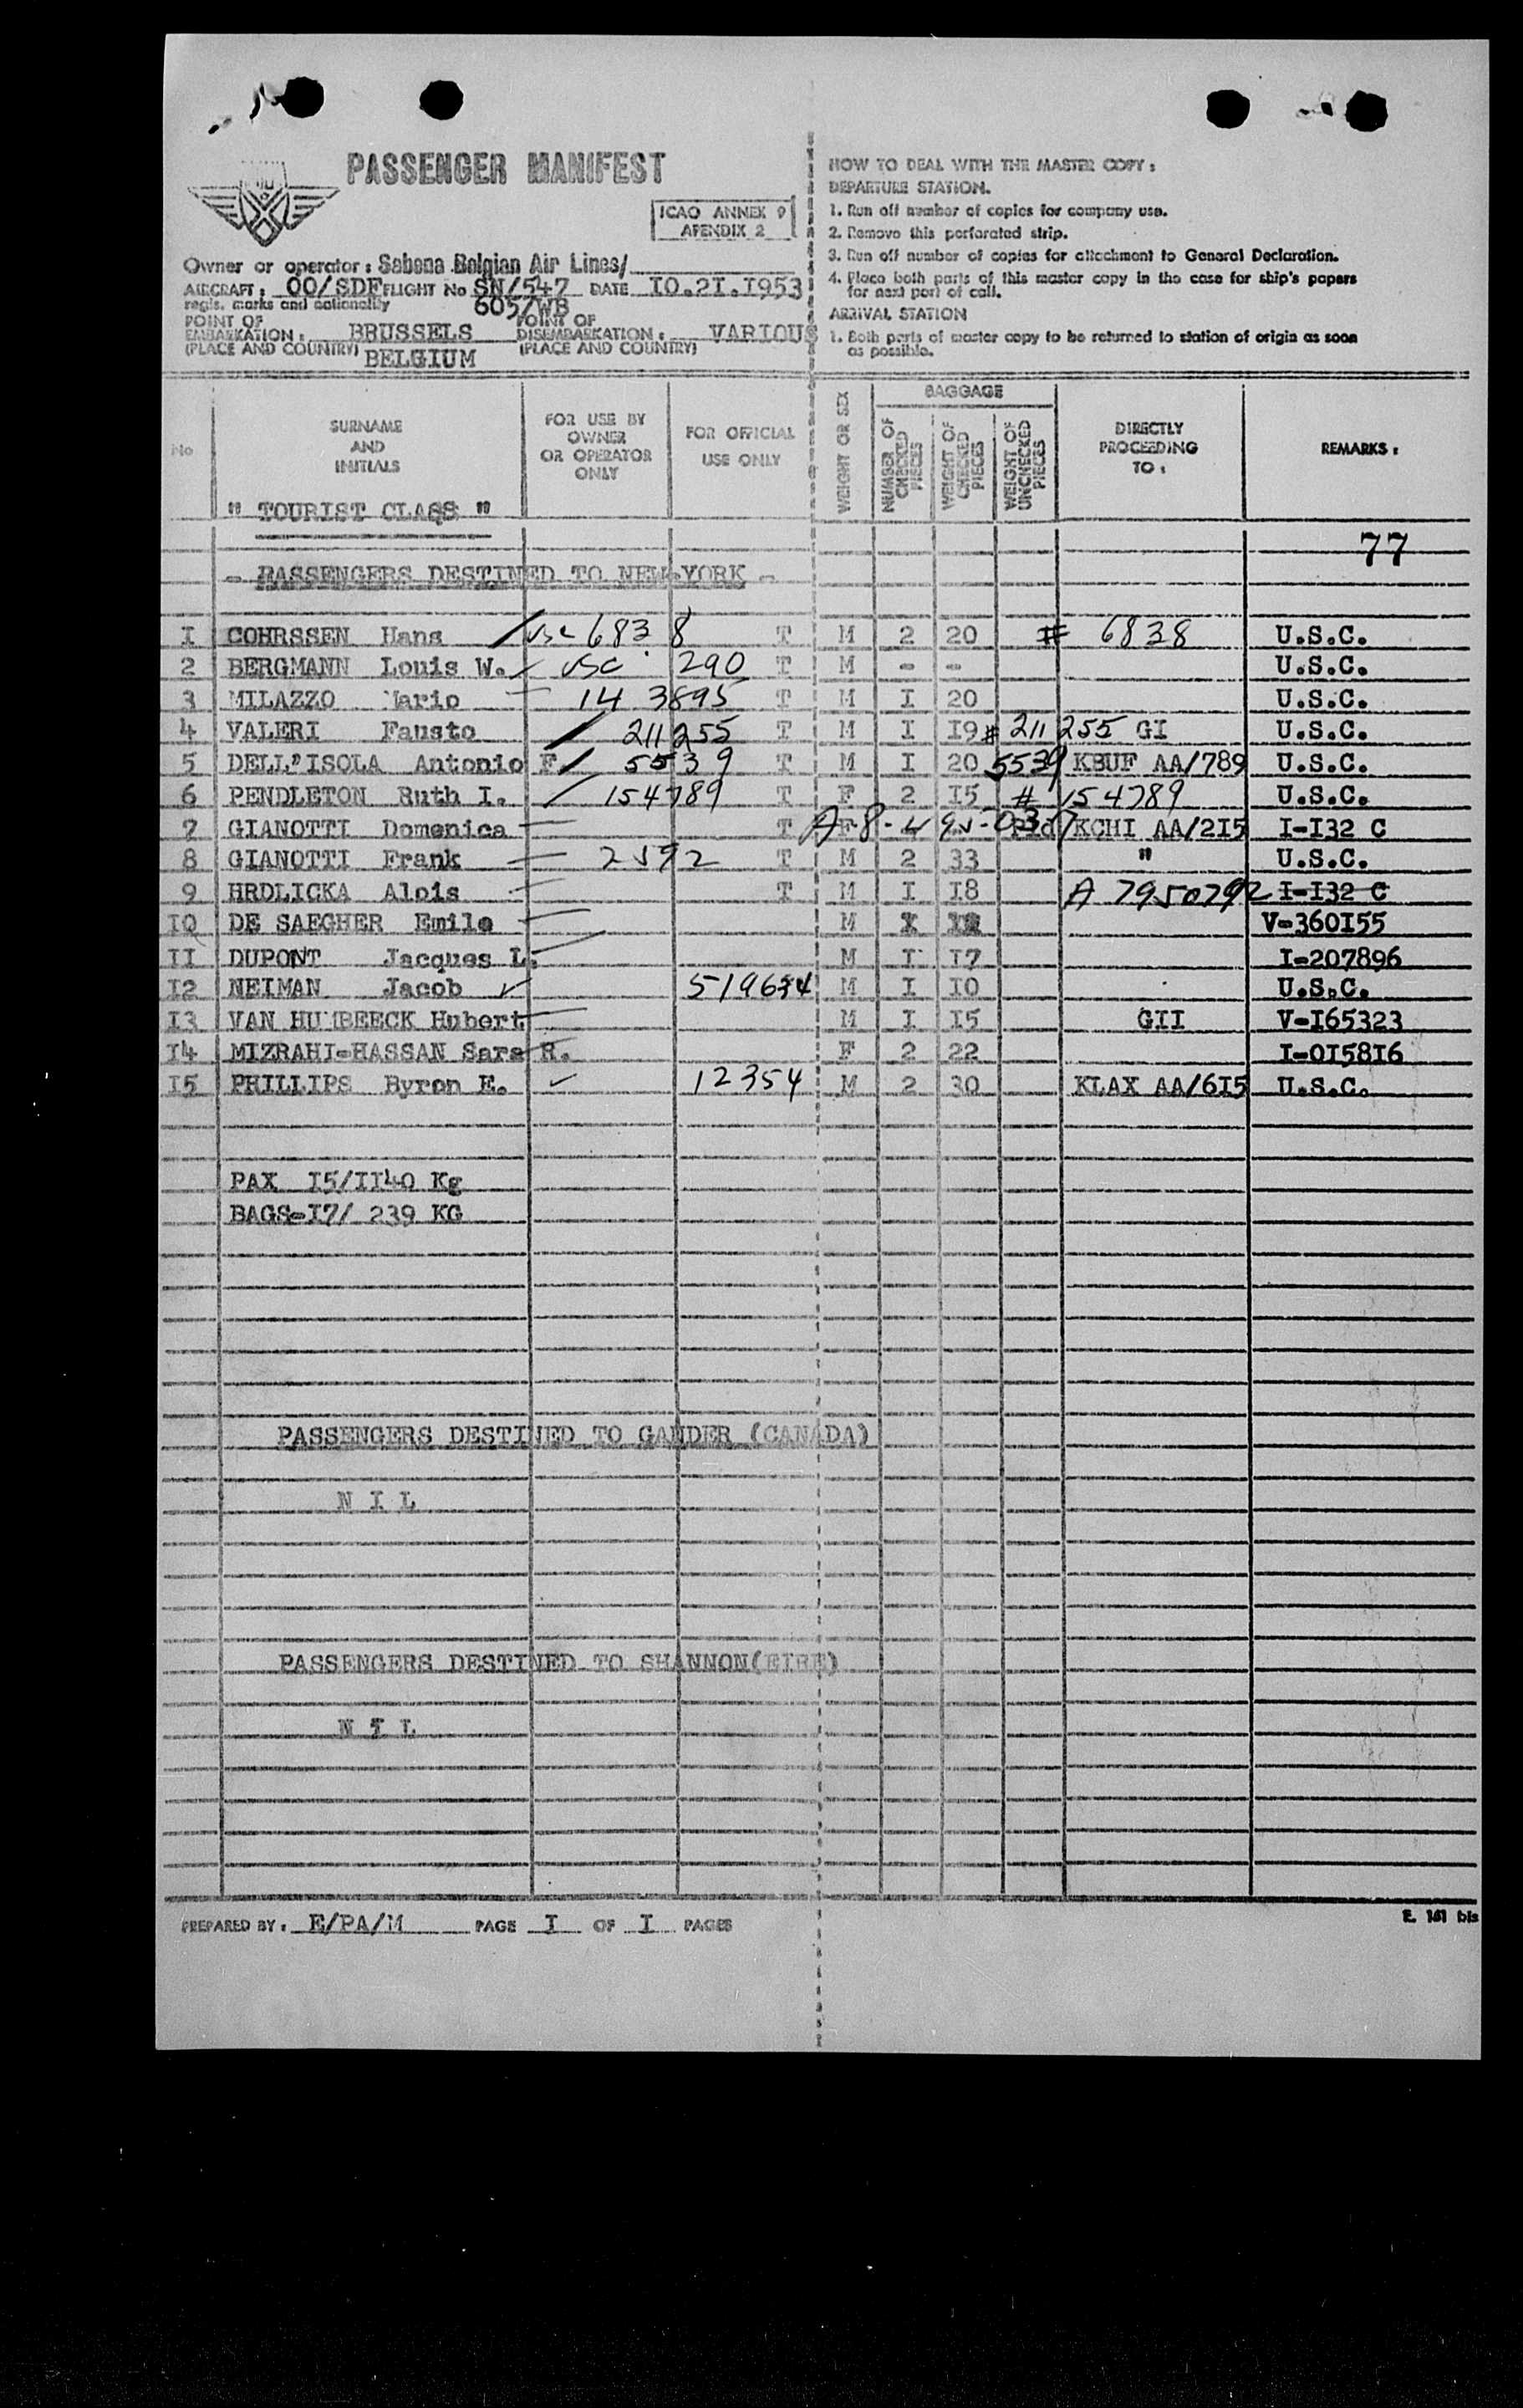 PASSENGER MANIFEST
ICAO ANNEX 9
APENDIX 2
Owner or operator : Sabena Belgian Air Lines/
AIRCRAFT : OO/SDF FLIGHT No SN/547 DATE 10.21.1953
regis. marks and nationality 605/WB
POINT OF EMBARKATION : BRUSSELS POINT OF DISEMBARKATION : VARIOUS
(PLACE AND COUNTRY) BELGIUM (PLACE AND COUNTRY)
HOW TO DEAL WITH THE MASTER COPY :
DEPARTURE STATION.
1. Run off number of copies for company use.
2. Remove this perforated strip.
3. Run off number of copies for attachment to General Declaration.
4. Place both parts of this master copy in the case for ship's papers
for next port of call.
ARRIVAL STATION
1. Both parts of master copy to be returned to station of origin as soon
as possible.
No
SURNAME
AND
INITIALS
FOR USE BY
OWNER
OR OPERATOR
ONLY
FOR OFFICIAL
USE ONLY
WEIGHT OR SEX
BAGGAGE
NUMBER OF CHECKED PIECES
WEIGHT OF CHECKED PIECES
WEIGHT OF UNCHECKED PIECES
DIRECTLY
PROCEEDING
TO :
REMARKS :
" TOURIST CLASS "
77
- PASSENGERS DESTINED TO NEW-YORK -
I COHRSSEN Hans usc 6838 T M 2 20 # 6838 U.S.C.
2 BERGMANN Louis W. usc 290 T M - - U.S.C.
3 MILAZZO Mario 14 3895 T M I 20 U.S.C.
4 VALERI Fausto 211255 T M I I9 # 211255 GI U.S.C.
5 DELL'ISOLA Antonio F. 5539 T M I 20 5539 KBUF AA/789 U.S.C.
6 PENDLETON Ruth I. 154789 T F 2 I5 # 154789 U.S.C.
7 GIANOTTI Domenica T F KCHI AA/2I5 I-I32 C
8 GIANOTTI Frank 2592 T M 2 33 " U.S.C.
9 HRDLICKA Alois T M I I8 A 7950792 I-I32 C
IO DE SAEGHER Emile M I V-360I55
II DUPONT Jacques L. M I I7 I-207896
I2 NEIMAN Jacob 519634 M I IO U.S.C.
I3 VAN HUMBEECK Hubert M I I5 GII V-I65323
I4 MIZRAHI-HASSAN Sara R. F 2 22 I-OI58I6
I5 PHILLIPS Byron E. 12354 M 2 30 KLAX AA/6I5 U.S.C.
PAX I5/II40 Kg
BAGS-I7/ 239 KG
PASSENGERS DESTINED TO GANDER (CANADA)
N I L
PASSENGERS DESTINED TO SHANNON(EIRE)
N I L
PREPARED BY : E/PA/M PAGE I OF I PAGES
E. 161 bis